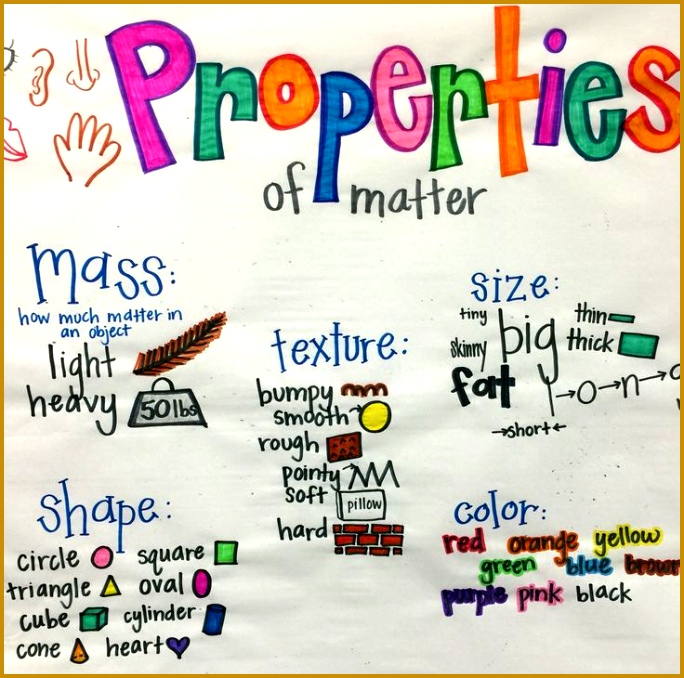 Properties
of matter
mass:
how much matter in
an object
light
heavy
50 lbs
shape:
circle square
triangle oval
cube cylinder
cone heart
texture:
bumpy
smooth
rough
pointy
soft
pillow
hard
size:
tiny
skinny
big
fat
thin
thick
→o→n→
→short←
color:
red orange yellow
green blue brown
purple pink black